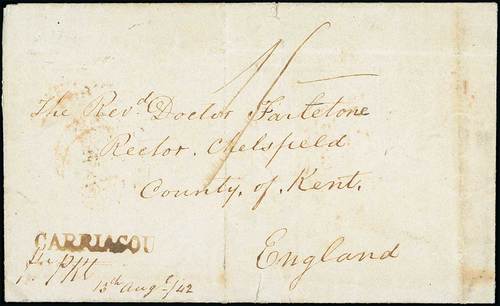 1/-
The Revd. Doctor Tarletone
Rector. Chelsfield
County. of. Kent.
England
CARRIACOU
per Pkt
15th Augt/42